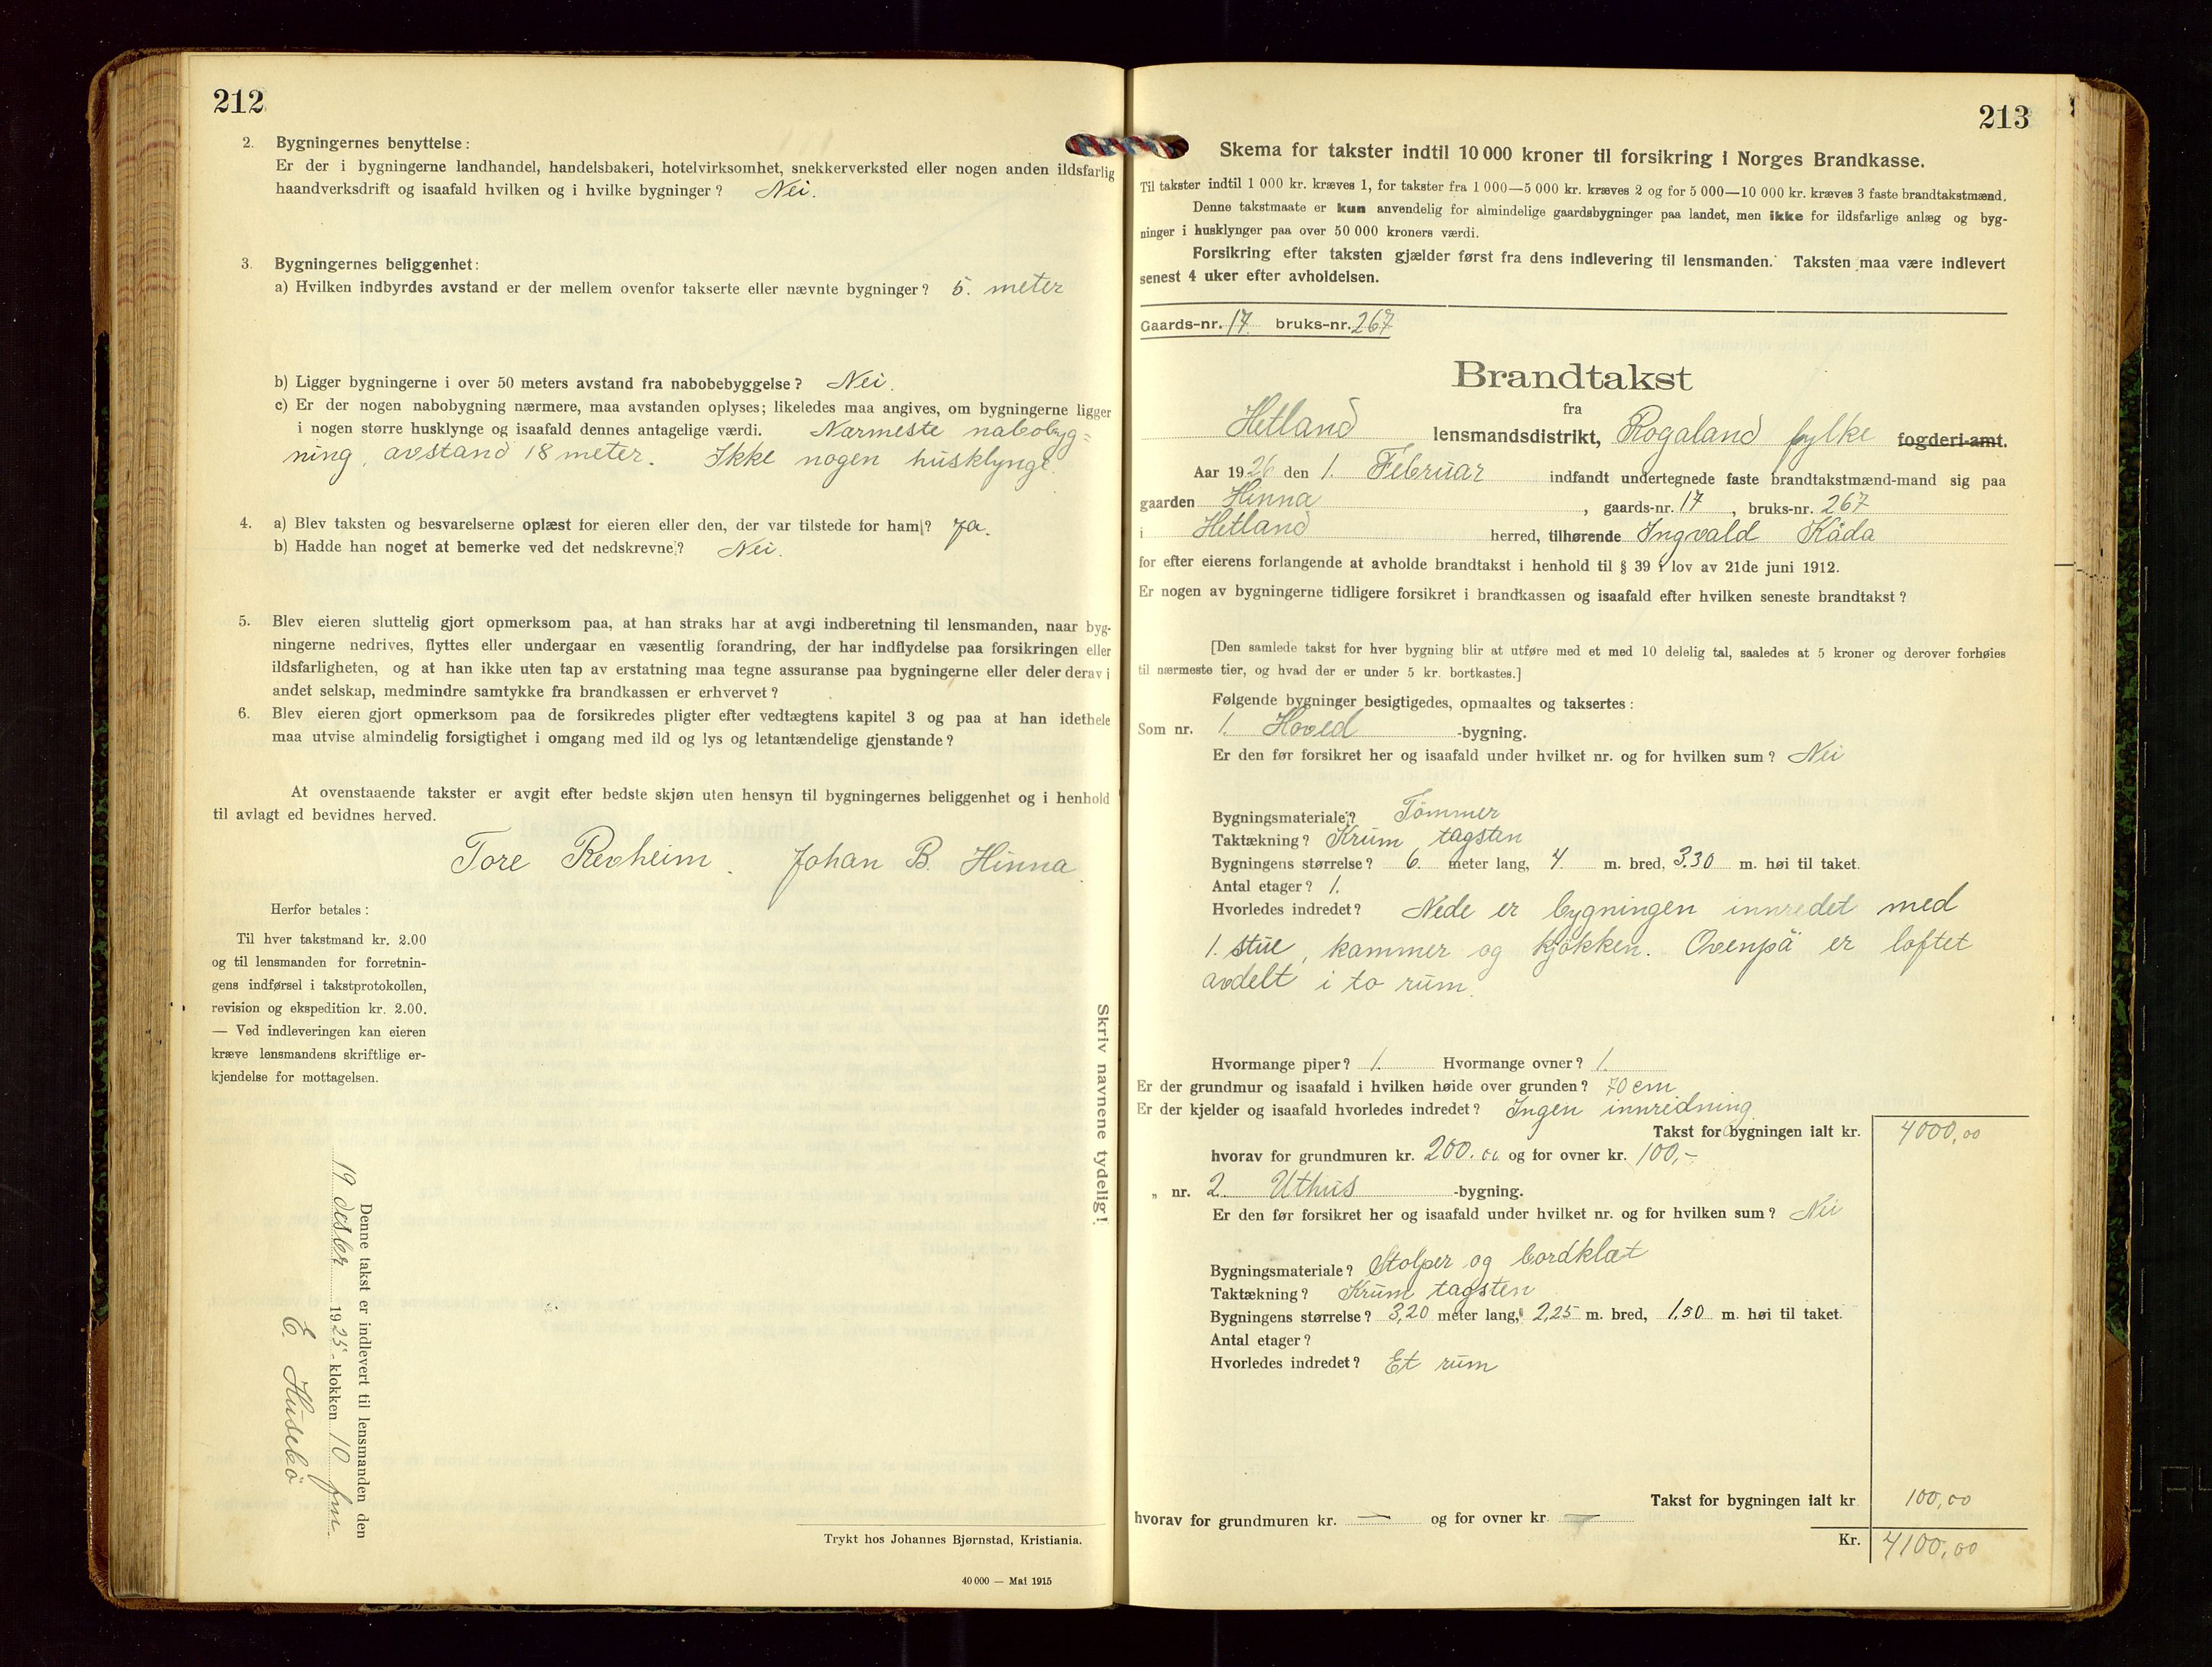 212
2. Bygningernes benyttelse:
Er der i bygningerne landhandel, handelsbakeri, hotelvirksomhet, snekkerverksted eller nogen anden ildsfarlig
haandverksdrift og isaafald hvilken og i hvilke bygninger? Nei.
3. Bygningernes beliggenhet:
a) Hvilken indbyrdes avstand er der mellem ovenfor takserte eller nævnte bygninger? 5. meter
b) Ligger bygningerne i over 50 meters avstand fra nabobebyggelse? Nei.
c) Er der nogen nabobygning nærmere, maa avstanden oplyses; likeledes maa angives, om bygningerne ligger
i nogen større husklynge og isaafald dennes antagelige værdi. Nærmeste nabobyg=
ning, avstand 18 meter. Ikke nogen husklynge.
4. a) Blev taksten og besvarelserne oplæst for eieren eller den, der var tilstede for ham? Ja.
b) Hadde han noget at bemerke ved det nedskrevne? Nei.
5. Blev eieren sluttelig gjort opmerksom paa, at han straks har at avgi indberetning til lensmanden, naar byg-
ningerne nedrives, flyttes eller undergaar en væsentlig forandring, der har indflydelse paa forsikringen eller
ildsfarligheten, og at han ikke uten tap av erstatning maa tegne assuranse paa bygningerne eller deler derav i
andet selskap, medmindre samtykke fra brandkassen er erhvervet?
6. Blev eieren gjort opmerksom paa de forsikredes pligter efter vedtægtens kapitel 3 og paa at han idethele
maa utvise almindelig forsigtighet i omgang med ild og lys og letantændelige gjenstande?
At ovenstaaende takster er avgit efter bedste skjøn uten hensyn til bygningernes beliggenhet og i henhold
til avlagt ed bevidnes herved.
Tore Revheim. Johan B. Hinna.
Herfor betales:
Til hver takstmand kr. 2.00
og til lensmanden for forretnin-
gens indførsel i takstprotokollen,
revision og ekspedition kr. 2.00.
— Ved indleveringen kan eieren
kræve lensmandens skriftlige er-
kjendelse for mottagelsen.
Skriv navnene tydelig!
Denne takst er indlevert til lensmanden den
19 desbr 1925 - klokken 10 fm.
E. Husebø
Trykt hos Johannes Bjørnstad, Kristiania.
40 000 — Mai 1915
213
Skema for takster indtil 10 000 kroner til forsikring i Norges Brandkasse.
Til takster indtil 1 000 kr. kræves 1, for takster fra 1 000—5 000 kr. kræves 2 og for 5 000—10 000 kr. kræves 3 faste brandtakstmænd.
Denne takstmaate er kun anvendelig for almindelige gaardsbygninger paa landet, men ikke for ildsfarlige anlæg og byg-
ninger i husklynger paa over 50 000 kroners værdi.
Forsikring efter taksten gjælder først fra dens indlevering til lensmanden. Taksten maa være indlevert
senest 4 uker efter avholdelsen.
Gaards-nr. 17. bruks-nr. 267
Brandtakst
fra
Hetland lensmandsdistrikt, Rogaland fylke fogderi-amt.
Aar 1926 den 1. Februar indfandt undertegnede faste brandtakstmænd-mand sig paa
gaarden Hinna, gaards-nr. 17, bruks-nr. 267
i Hetland herred, tilhørende Ingvald Kåda
for efter eierens forlangende at avholde brandtakst i henhold til § 39 i lov av 21de juni 1912.
Er nogen av bygningerne tidligere forsikret i brandkassen og isaafald efter hvilken seneste brandtakst?
[Den samlede takst for hver bygning blir at utføre med et med 10 delelig tal, saaledes at 5 kroner og derover forhøies
til nærmeste tier, og hvad der er under 5 kr. bortkastes.]
Følgende bygninger besigtigedes, opmaaltes og taksertes:
Som nr. 1. Hoved -bygning.
Er den før forsikret her og isaafald under hvilket nr. og for hvilken sum? Nei
Bygningsmateriale? Tømmer
Taktækning? Krum tagsten
Bygningens størrelse? 6. meter lang, 4. m. bred, 3.30 m. høi til taket.
Antal etager? 1.
Hvorledes indredet? Nede er bygningen innredet med
1. stue, kammer og kjøkken. Ovenpå er loftet
avdelt i to rum.
Hvormange piper? 1. Hvormange ovner? 1.
Er der grundmur og isaafald i hvilken høide over grunden? 70 cm
Er der kjelder og isaafald hvorledes indredet? Ingen innredning
Takst for bygningen ialt kr. 4000,00
hvorav for grundmuren kr. 200.00 og for ovner kr. 100,-
„ nr. 2. Uthus -bygning.
Er den før forsikret her og isaafald under hvilket nr. og for hvilken sum? Nei
Bygningsmateriale? Stolper og bordklæt
Taktækning? Krum tagsten
Bygningens størrelse? 3,20 meter lang, 2,25 m. bred, 1.50 m. høi til taket.
Antal etager?
Hvorledes indredet? Et rum
Takst for bygningen ialt kr. 100,00
hvorav for grundmuren kr. — og for ovner kr. —
Kr. 4100,00